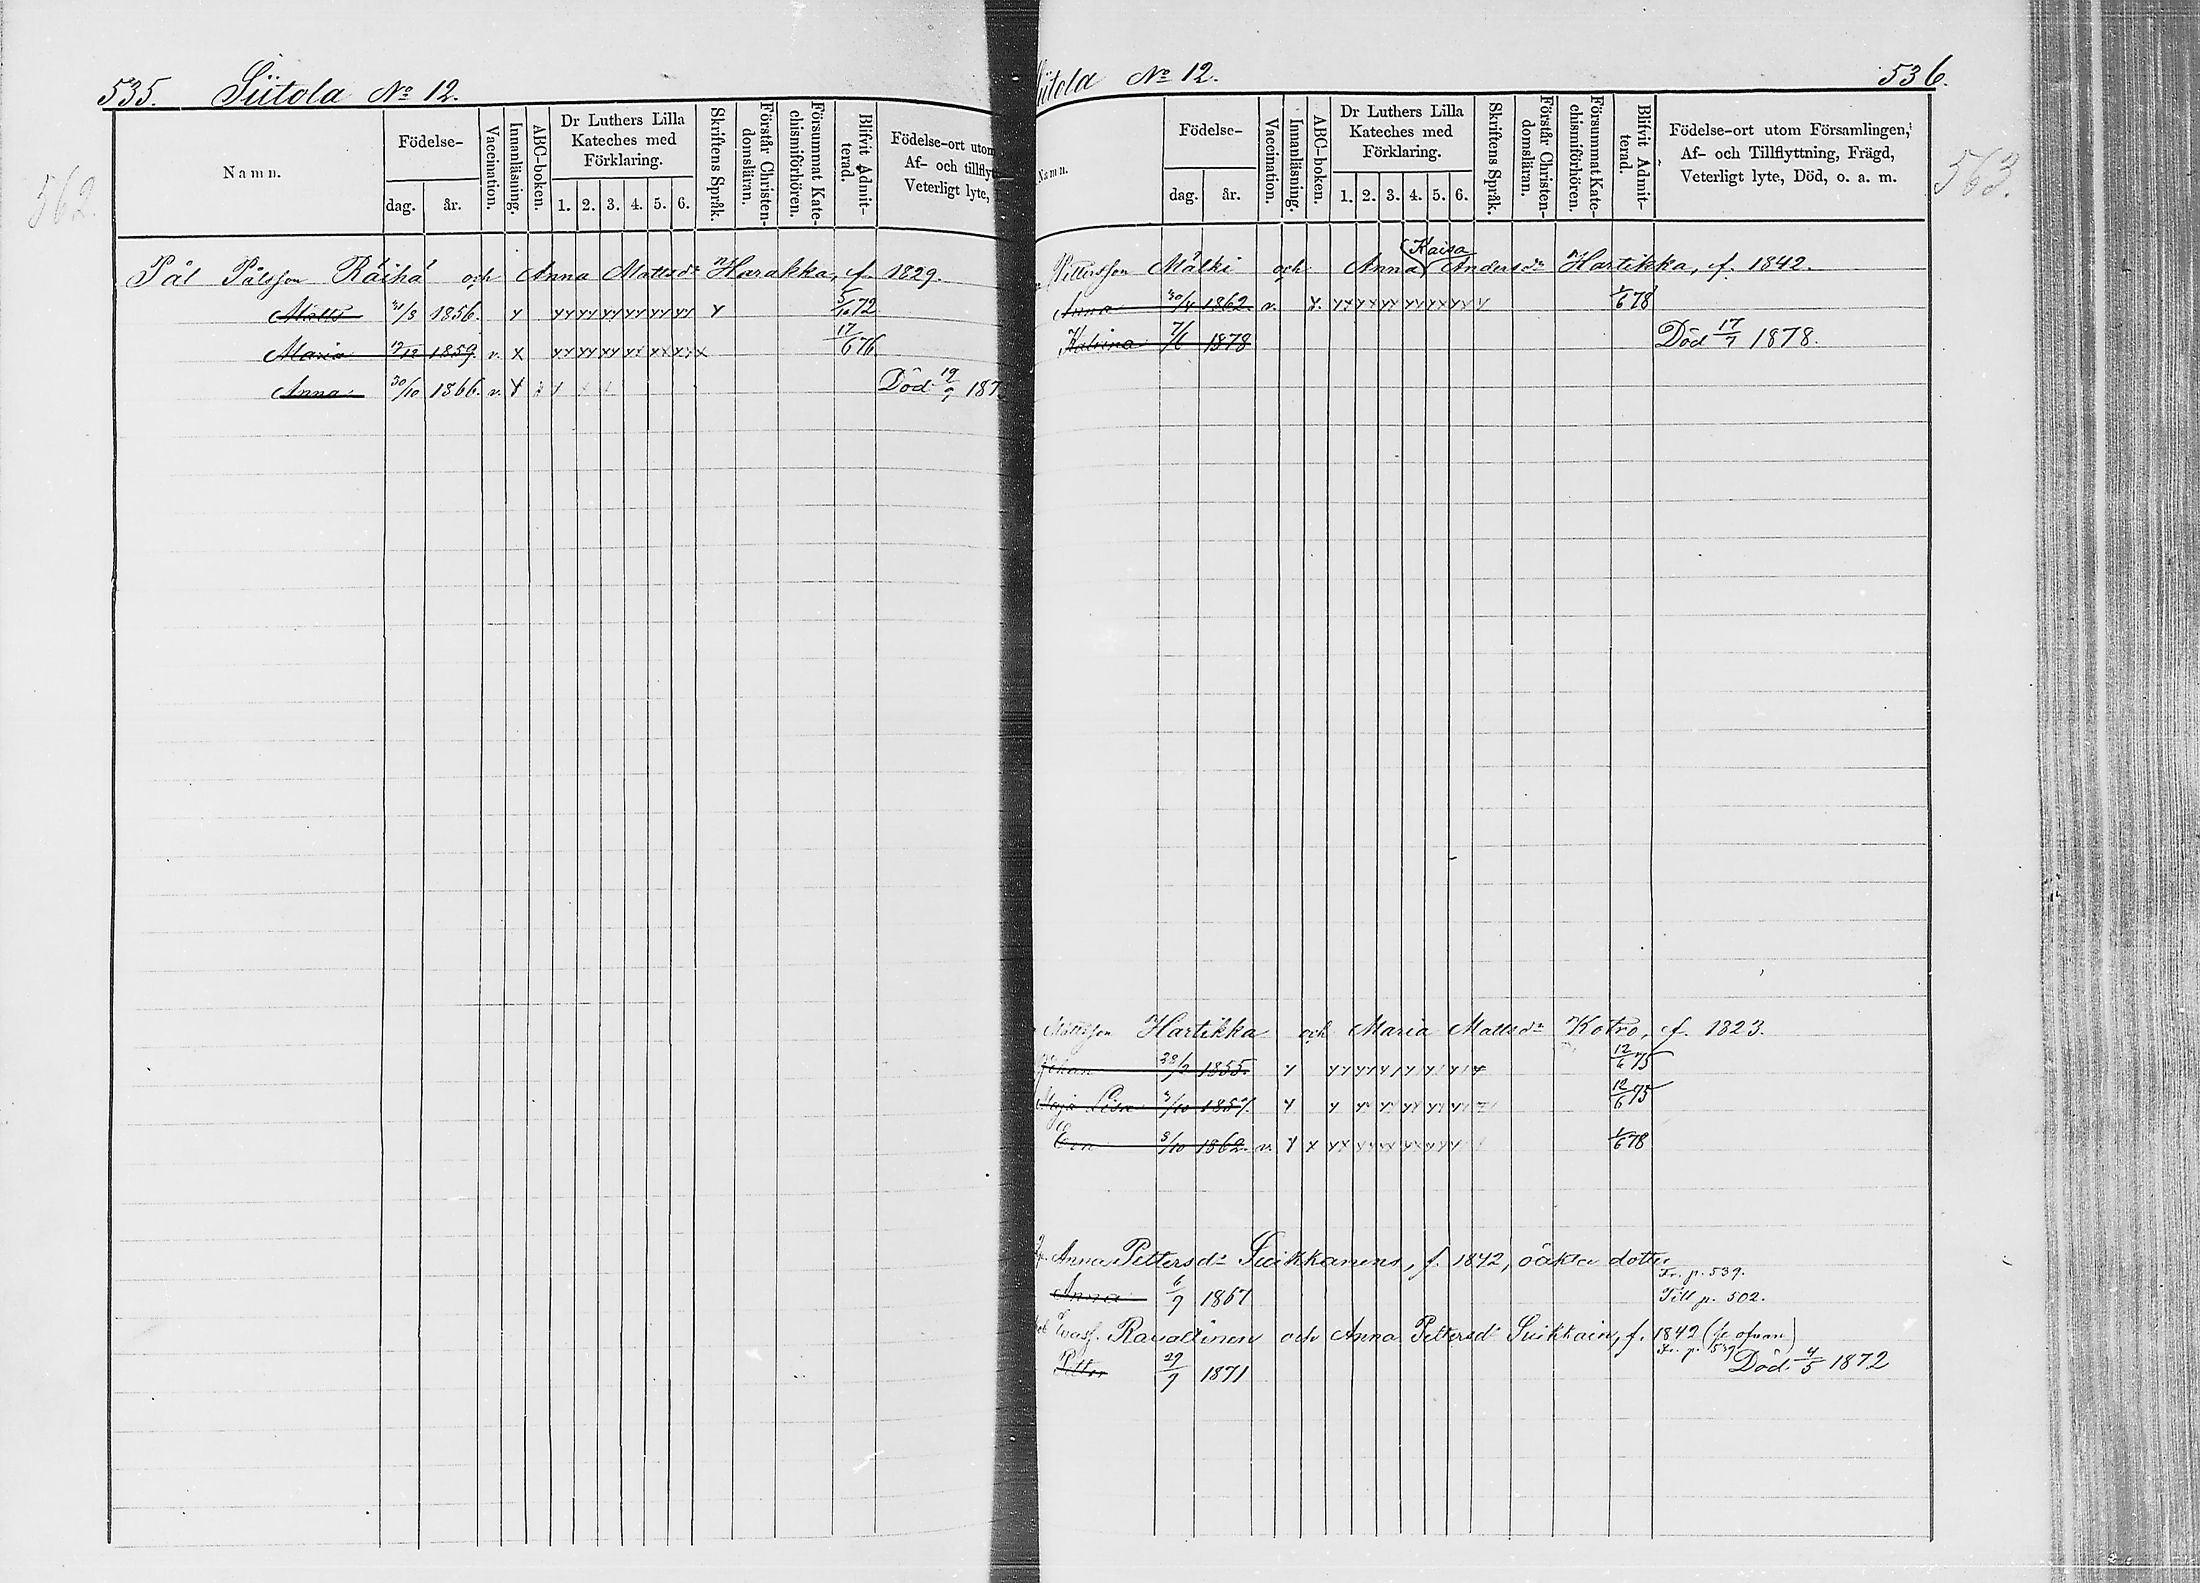 535. Siitola No 12.
562.
Namn.
Födelse-
dag. år.
Vaccination.
Innanläsning.
ABC-boken.
Dr Luthers Lilla
Kateches med
Förklaring.
1. 2. 3. 4. 5. 6.
Skriftens Språk.
Förstår Christen-
domsläran.
Försummat Kate-
chismiförhören.
Blifvit Admit-
terad.
Födelse-ort utom
Af- och tillfly
Veterligt lyte,
Pål Pålsson Räihä och Anna Mattsdr Harakka, f. 1829.
Matts 21/8 1856. 5/10 72
Maria 1859. v. 17/6 76
Anna 30/10 1866. v. Död 19/9 187
Siitola No 12. 536.
563.
Namn.
Födelse-
dag. år.
Vaccination.
Innanläsning.
ABC-boken.
Dr Luthers Lilla
Kateches med
Förklaring.
1. 2. 3. 4. 5. 6.
Skriftens Språk.
Förstår Christen-
domsläran.
Försummat Kate-
chismiförhören.
Blifvit Admit-
terad.
Födelse-ort utom Församlingen,
Af- och Tillflyttning, Frägd,
Veterligt lyte, Död, o. a. m.
Kaisa
Pettersson Mälki och Anna Andersdr Hartikka, f. 1842.
Anna 30/4 1862. v. 1/6 78
Katrina 7/6 1878 Död 17/7 1878.
Mattsson Hartikka och Maria Mattsdr Kotro, f. 1823.
Johan 28/2 1855. 12/6 75
Maja Lisa 3/10 1857. 12/6 75
Eva 8/10 1862. v. 1/6 78
Anna Pettersdr Suikkanens, f. 1842, oäkta dotter
Fr. p. 539.
Anna 6/7 1867 Till p. 502.
Ravattinen och Anna Pettersdr Suikkain, f. 1842 (se ofvan)
Fr. p. 539
Petter 29/7 1871 Död 4/5 1872